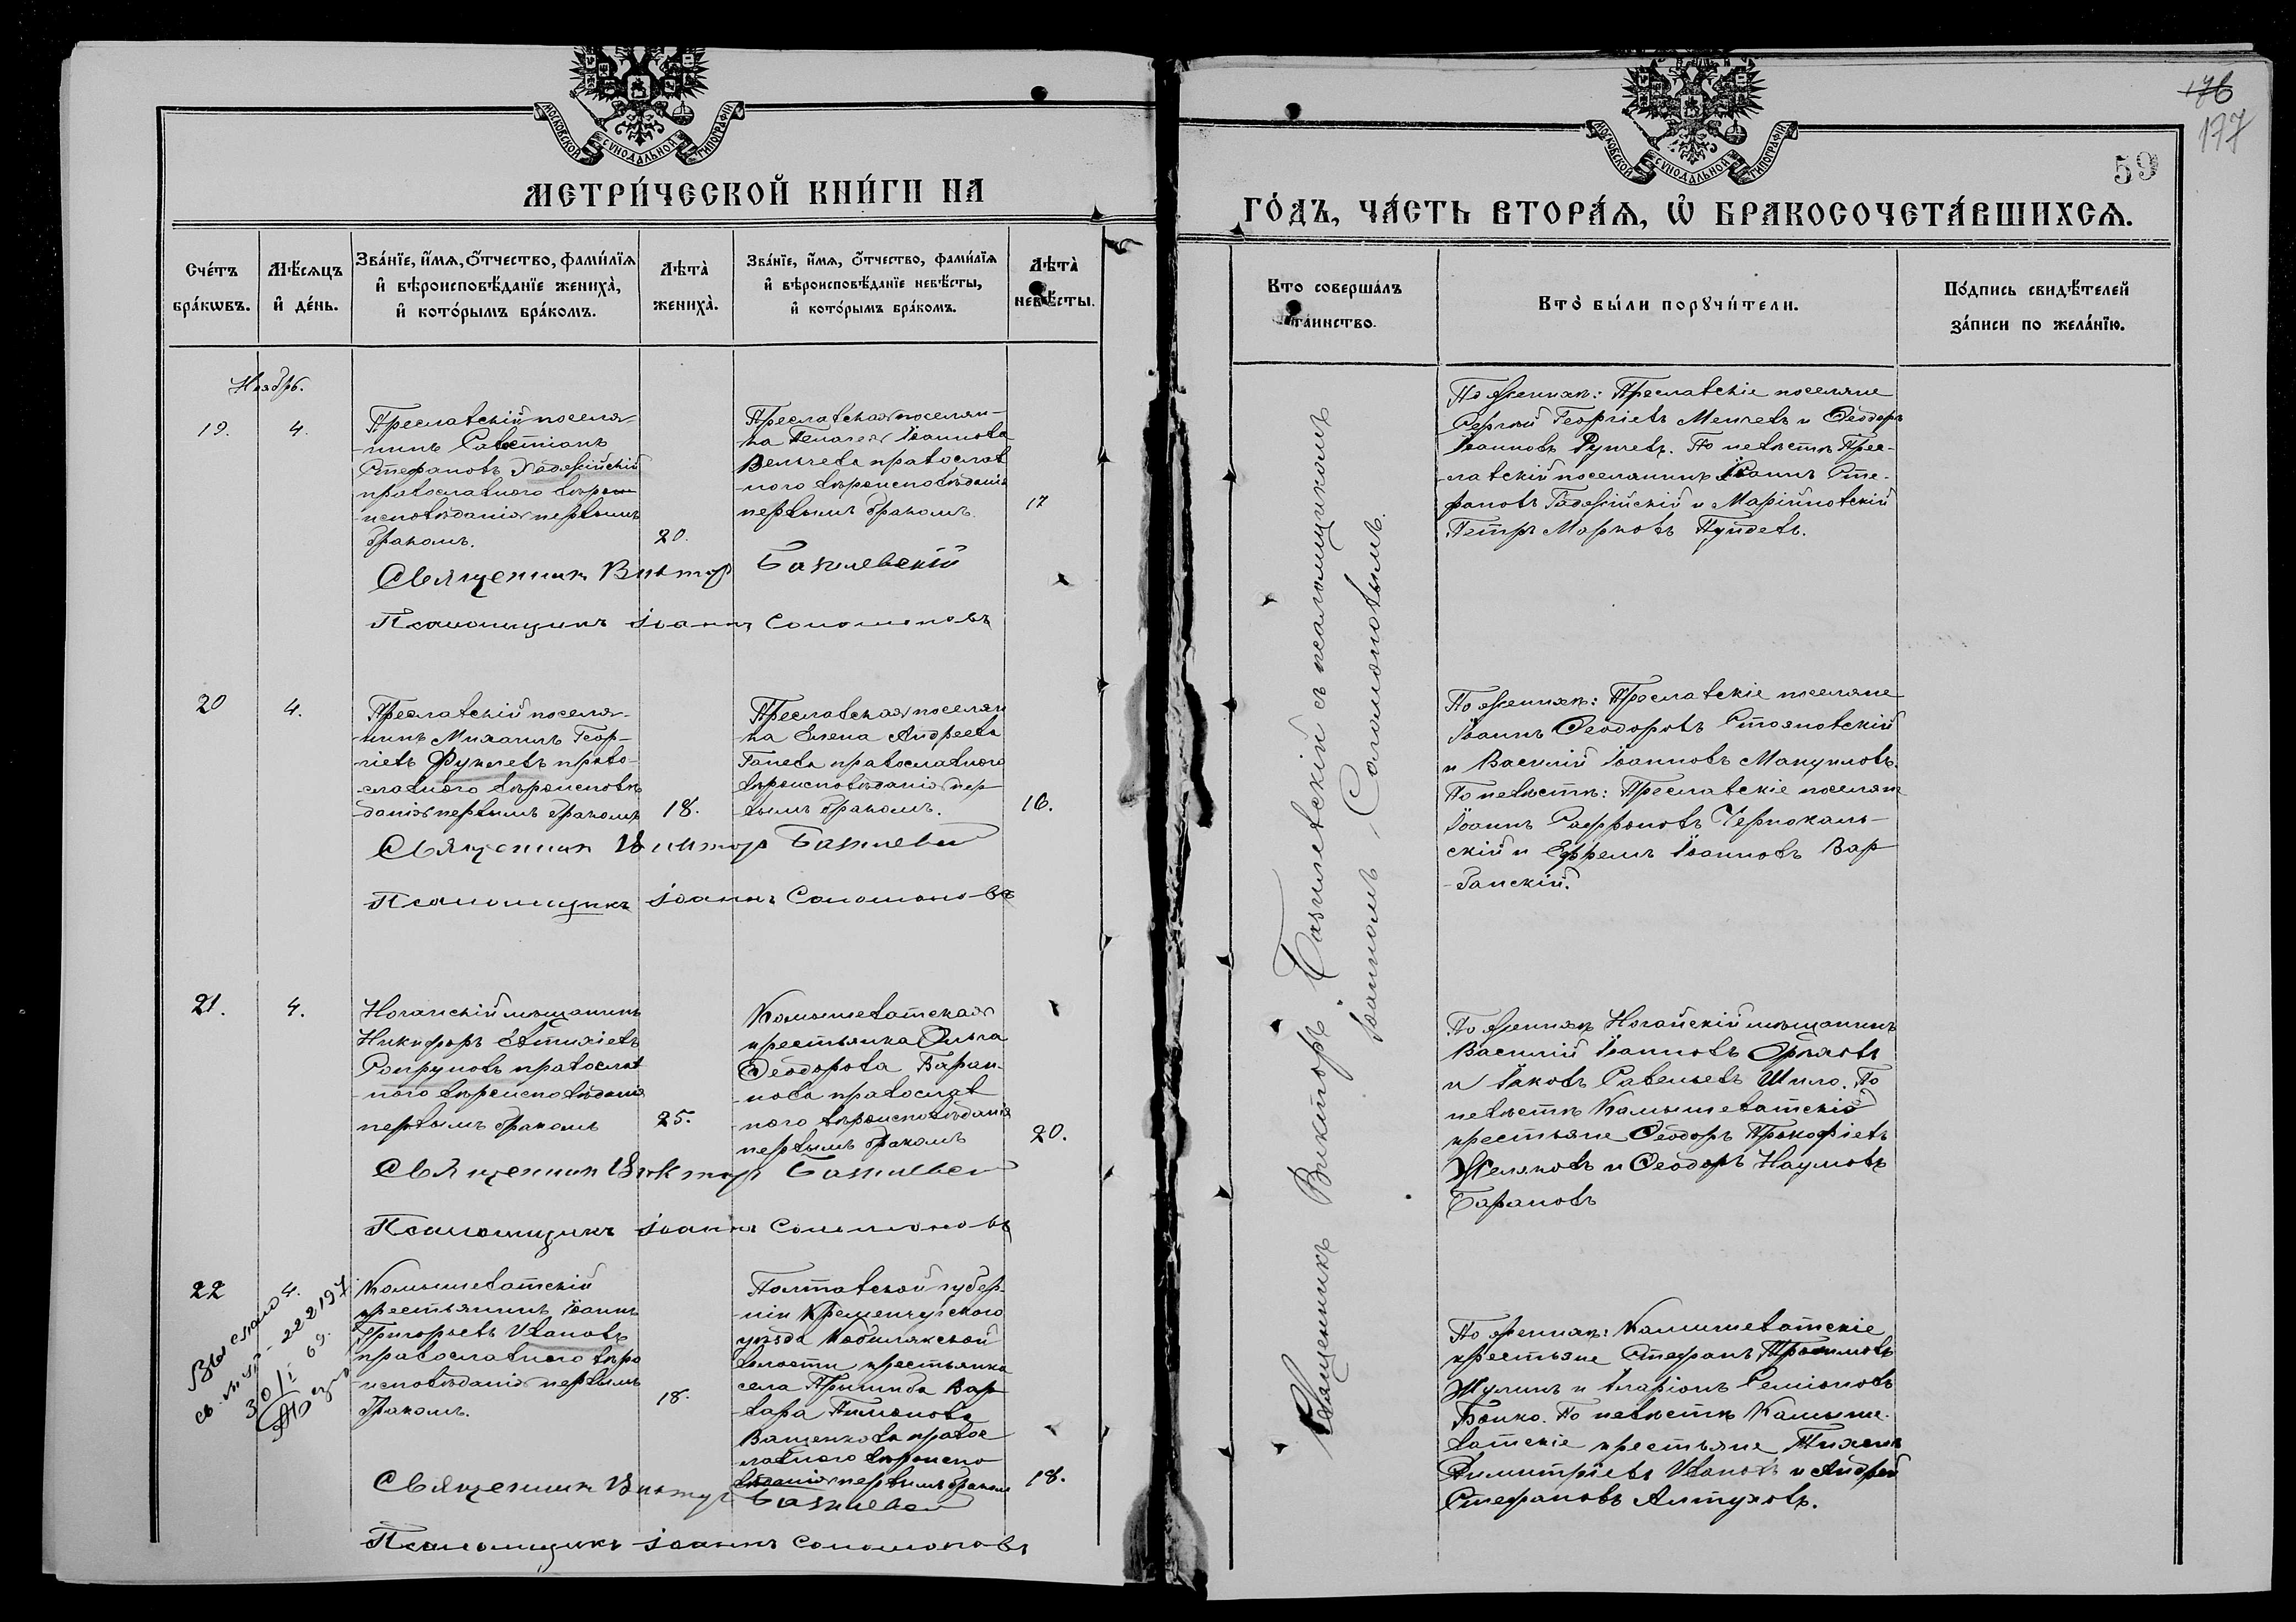 МОСКОВСКОЙ СУНОДАЛЬНОЙ ТИПОГРАФІИ
МЕТРИ́ЧЕСКОЙ КНИ́ГИ НА
Сче́тъ бра́кωвъ.
Мѣ́сяцъ и҆ де́нь.
Зва́нїе, и҆́мѧ, ѻ҆́тчество, фами́лїѧ
и҆ вѣроисповѣ́данїе жениха̀,
и҆ кото́рымъ бра́комъ.
Лѣта̀
жениха̀.
Зва́нїе, и҆́мѧ, ѻ҆́тчество, фами́лїѧ
и҆ вѣроисповѣ́данїе невѣ́сты,
и҆ кото́рымъ бра́комъ.
Лѣта̀
невѣ́сты.
Ноябрь.
19.
4.
Преславскій поселя-
-нинъ Савастіанъ
Стефановъ Гаджійскій
православнаго вѣро-
-исповѣданія первымъ
бракомъ.
20.
Преславская поселян-
-ка Пелагея Іоаннова
Вельчева православ
-ного вѣроисповѣданія
первымъ бракомъ.
17
Священникъ Викторъ Базилевскій
Псаломщикъ Іоаннъ Соломоновъ
20
4.
Преславскій поселя-
-нинъ Михаилъ Геор-
-гіевъ Фучелевъ право-
-славного вѣроисповѣ
-данія первымъ бракомъ
18.
Преславская поселян
-ка Елена Андреева
Ганева православного
вѣроисповѣданія пер-
-вымъ бракомъ.
16.
Священникъ Викторъ Базилевск
Псаломщикъ Іоаннъ Соломоновъ
21.
4.
Ногайскій мѣщанинъ
Никифоръ Евтихіевъ
Сапруновъ православ
-ного вѣроисповѣданія
первымъ бракомъ
25.
Камышеватская
крестьянка Ольга
Ѳеодорова Баран-
-нова православ
-ного вѣроисповѣданія
первымъ бракомъ
20.
Священникъ Викторъ Базилевск
Псаломщикъ Іоаннъ Соломоновъ
22
4.
Камышеватскій
крестьянинъ Іоаннъ
Григорьевъ Ивановъ
православного вѣро
-исповѣданія первымъ
бракомъ.
18.
Полтавской губер-
-ніи Кременчугского
уѣзда Кобелякской
волости крестьянка
села Вар-
-вара Пименова
Ващенкова правос
лавного вѣроиспо
вѣданія первымъ бракомъ
18.
Выслано
св. 22219
Священникъ Викторъ Базилевск
Псаломщикъ Іоаннъ Соломоновъ
МОСКОВСКОЙ СУНОДАЛЬНОЙ ТИПОГРАФІИ
176
177
59
ГО́ДЪ, ЧА́СТЬ ВТОРА́Ѧ, Ѽ БРАКОСОЧЕТА́ВШИХСѦ.
Кто соверша́лъ
та́инство.
Кто̀ бы́ли порꙋчи́тели.
По́дпись свидѣ́телей
за́писи по жела́нїю.
Священникъ Викторъ Базилевскій съ псаломщикомъ
Іоанномъ Соломоновымъ.
По женихѣ: Преславскіе поселяне
Сергѣй Георгіевъ Менчевъ и Ѳеодоръ
Іоанновъ Рунчевъ. По невѣстѣ Прес-
-лавскій поселянинъ Іоаннъ Сте-
фановъ Гаджійскій и Марійновскій
Петръ Марковъ Пундевъ.
По женихѣ: Преславскіе поселяне
Іоаннъ Ѳеодоровъ Стояновскій
и Василій Іоанновъ Мануиловъ.
По невѣстѣ: Преславскіе поселяне
Іоаннъ Саффоновъ Чернокаль-
скій и Ефремъ Іоанновъ Вар-
-банскій.
По женихѣ Ногайскій мѣщанинъ
Василій Іоанновъ Оржовъ
и Іаковъ Савельевъ Шило. По
невѣстѣ Камышеватскіе
крестьяне Ѳеодоръ Прокофіевъ
Желяковъ и Ѳеодоръ Наумовъ
Барановъ
По женихѣ: Камышеватскіе
крестьяне Стефанъ Трофимовъ
Жулинъ и Иларіонъ Семіоновъ
Бойко. По невѣстѣ Камыше-
ватскіе крестьяне Тихонъ
Димитріевъ Ивановъ и Андрей
Стефановъ Алтуховъ.